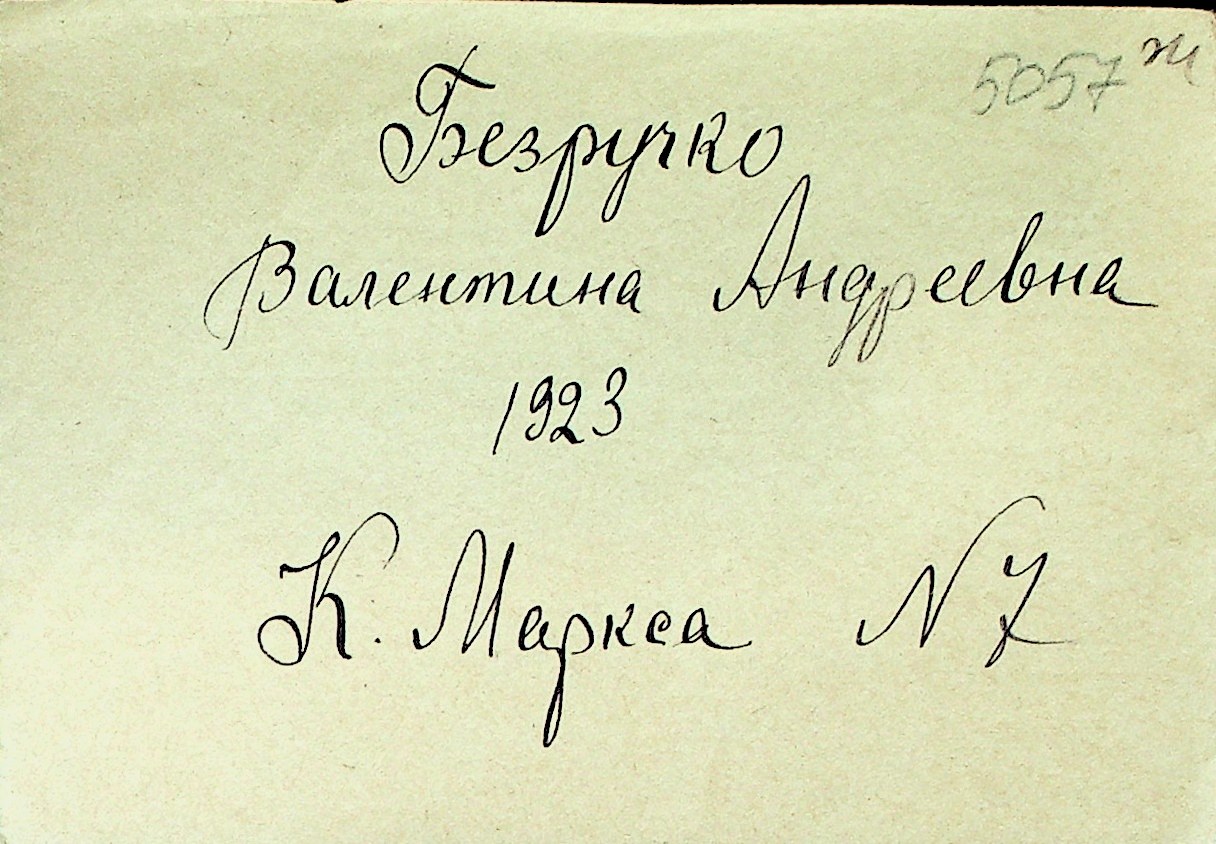 5057 ж
Безручко
Валентина Андреевна
1923
К. Маркса N 7